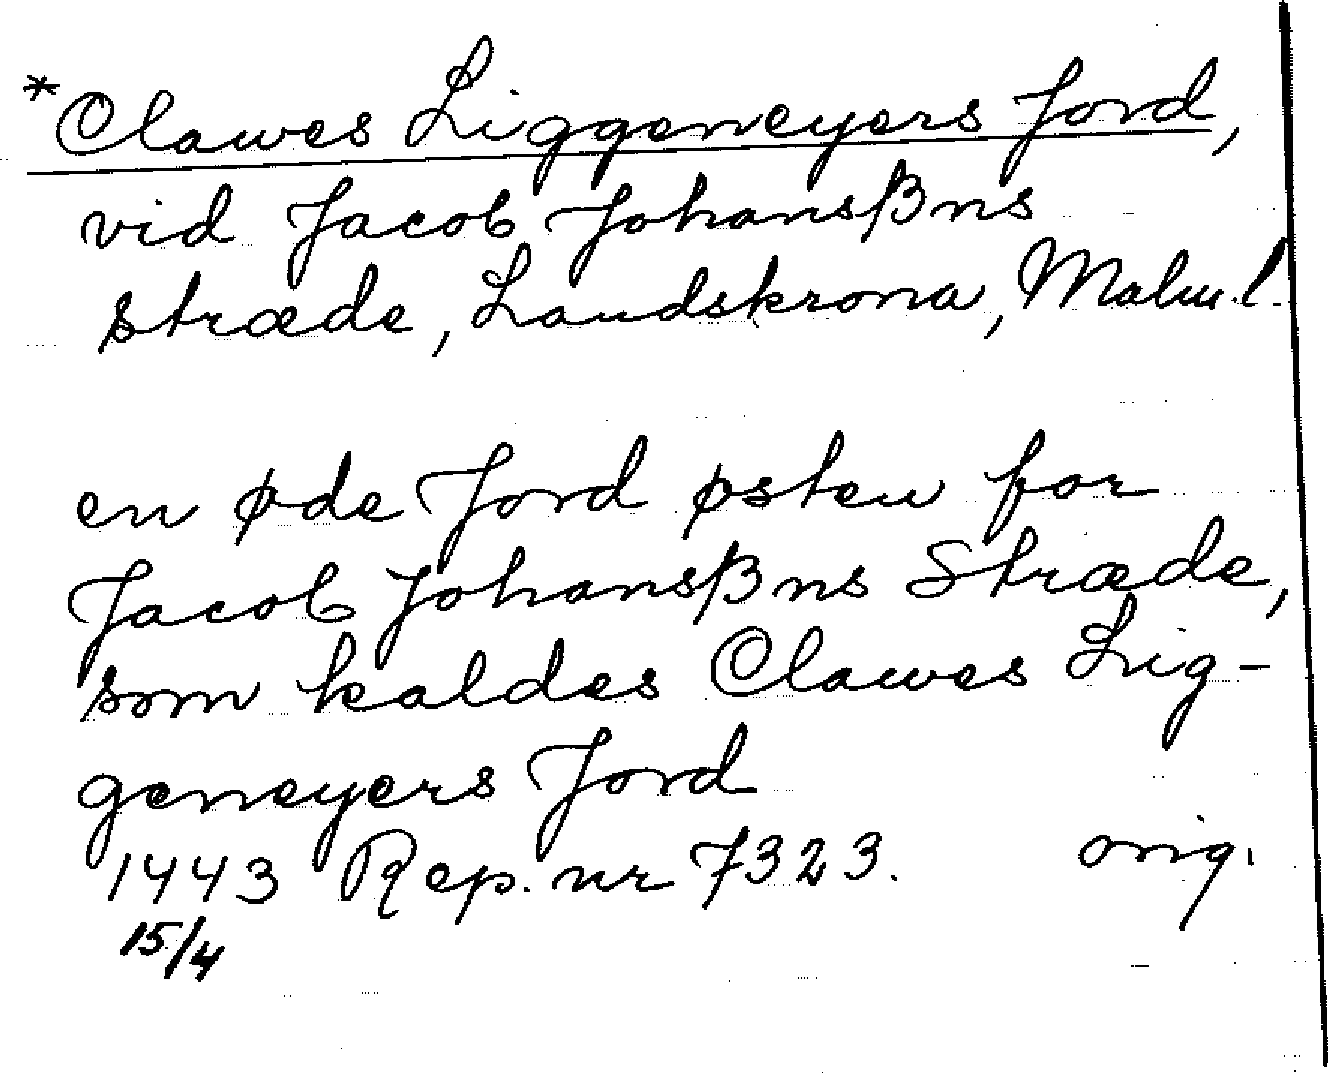 *Clawes Liggeneyers Jord,
vid Jacob Johansßns
stræde, Landskrona, Malm.l.
en øde Jord østen for
Jacob Johansßns Stræde,
som kaldes Clawes Lig-
geneyers Jord
1443 Rep. nr 7323. orig.
15/4